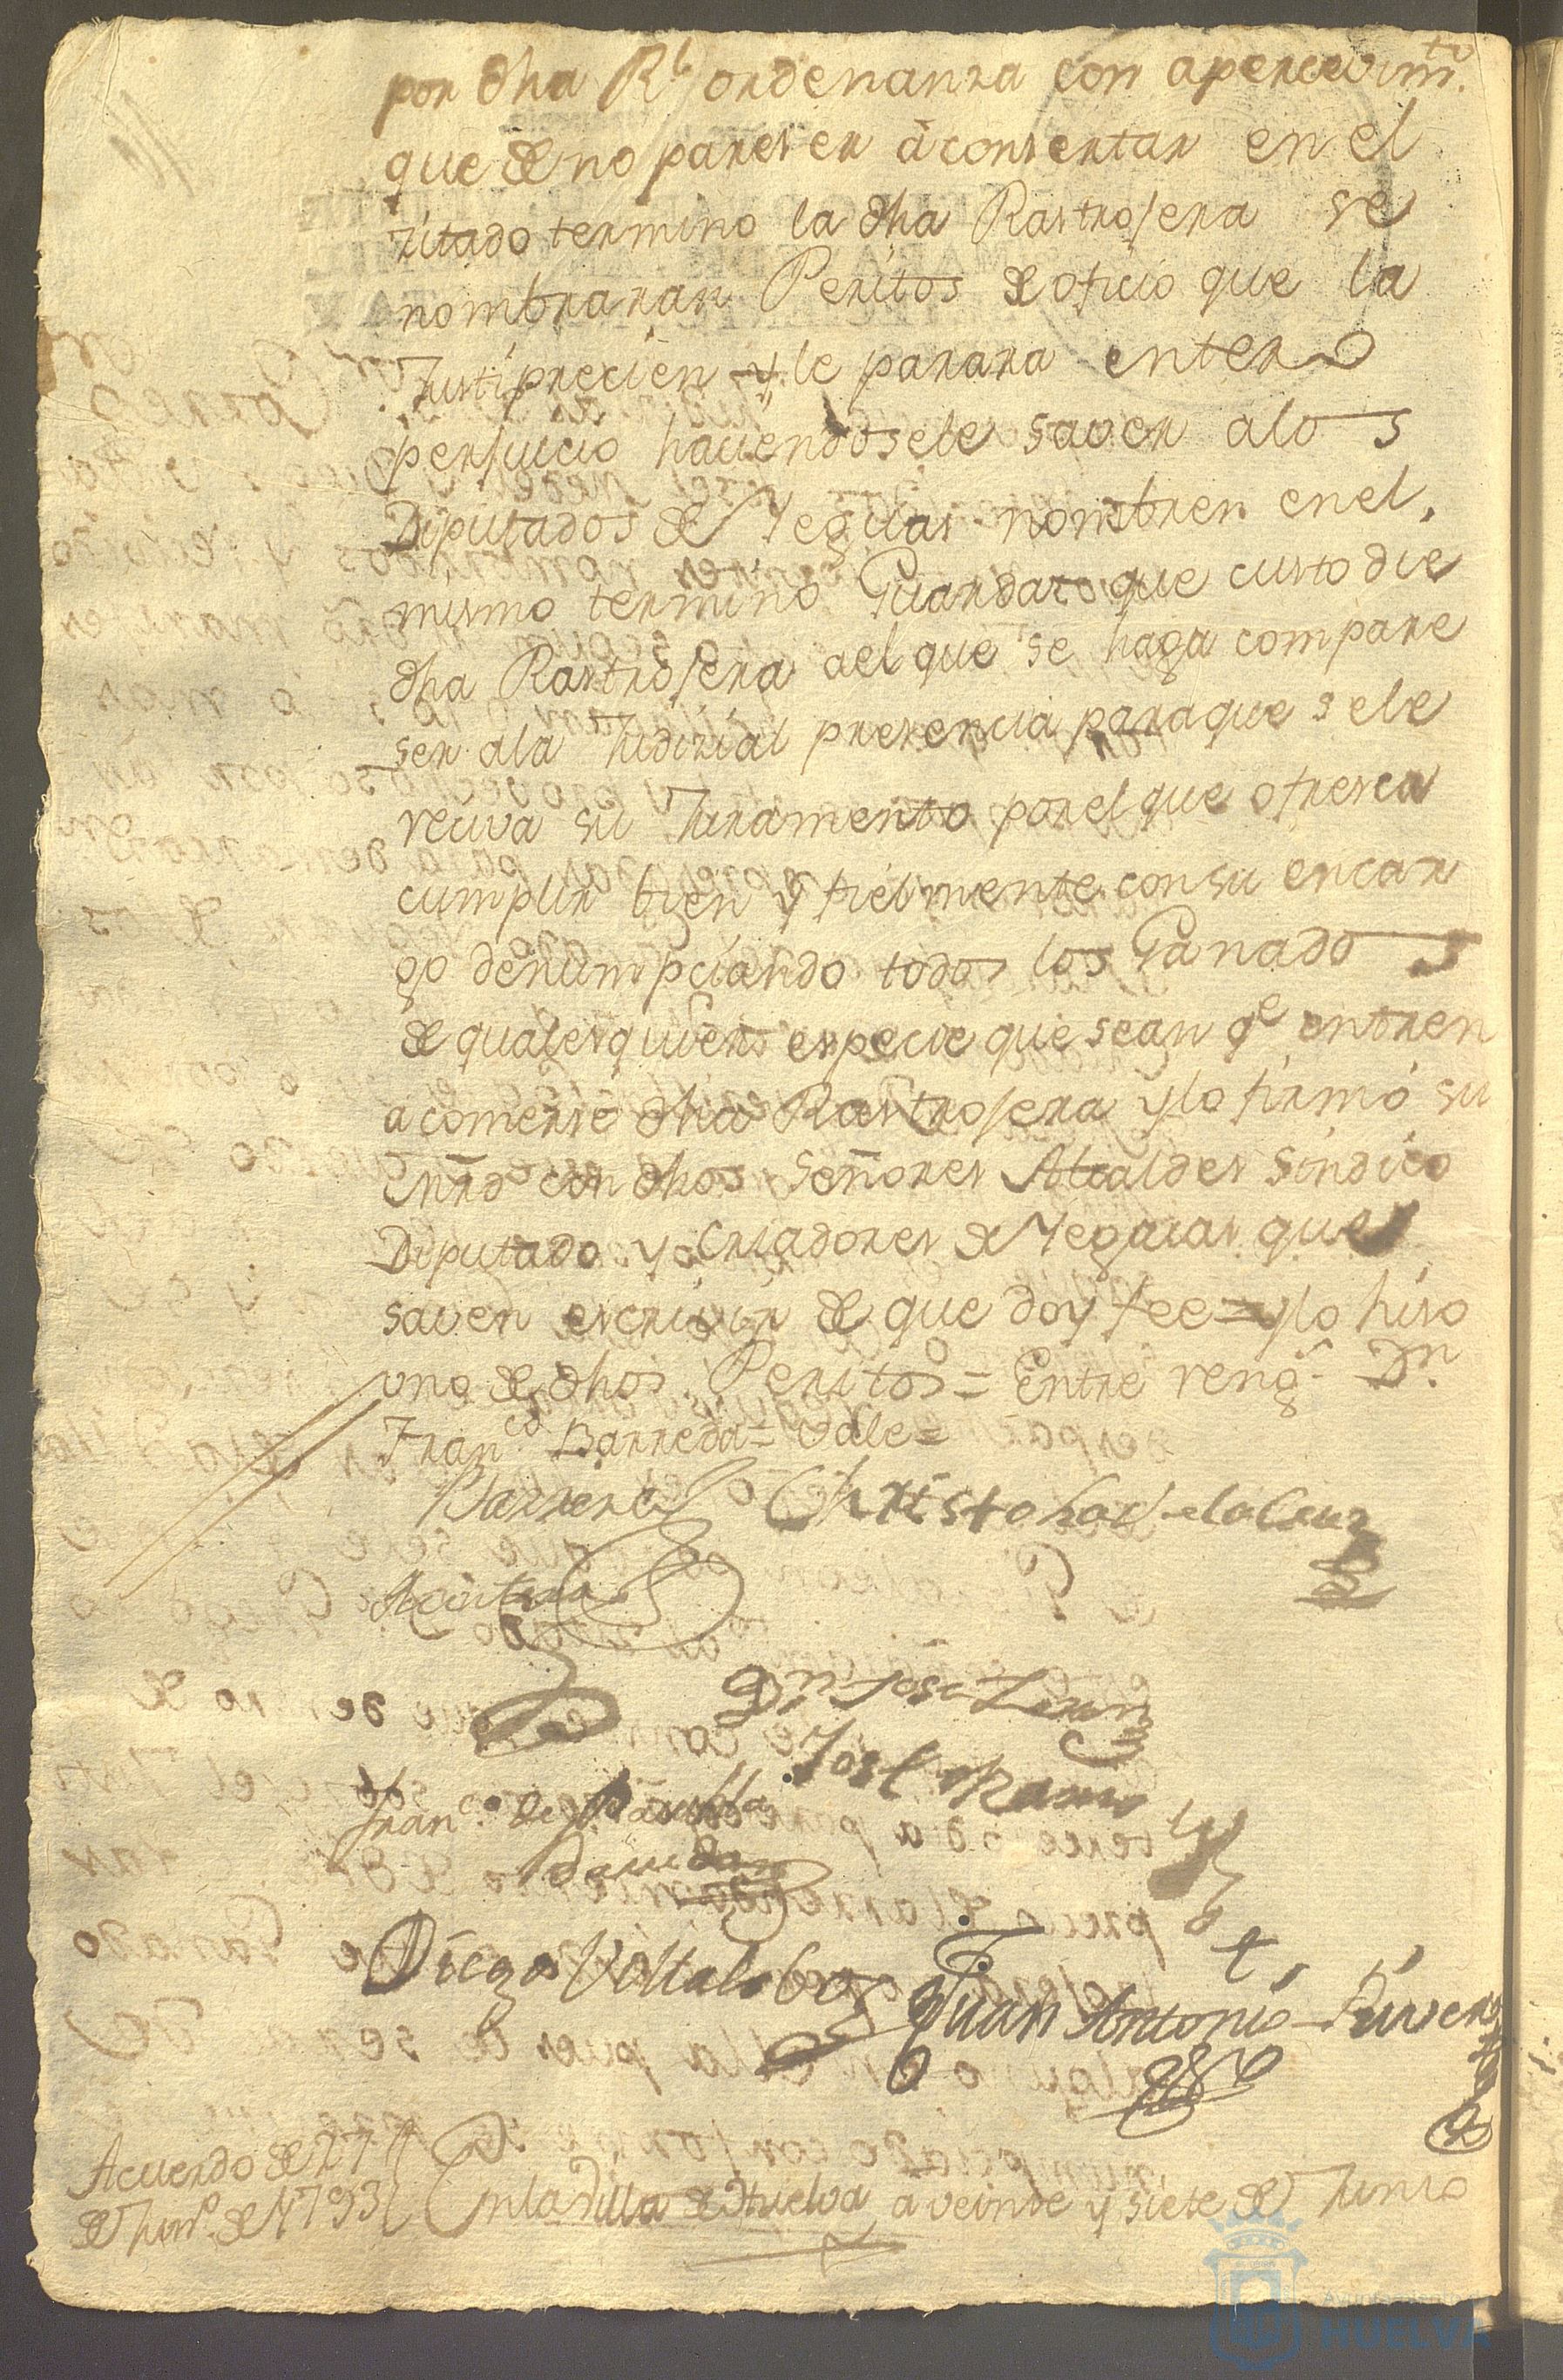 por dha Rl ordenanza con apercevimto.
que de no pareser á consertar en el
zitado termino la dha Rastrojera se
nombraran Peritos de oficio que la
Justiprecien y le parara entero
perjuicio haciendosele saver alos
Diputados de Yeguas nombren enel
mismo termino Guardas que custodie
dha Rastrojera ael que se haga compare
ser ala Judizial presencia paraque sele
reciva su Juramento porel que ofresca
cumplir bien y fielmente con su encar
go denumpciando todos los Ganados
de qualesquiera especie que sean qe entren
a comerse dha Rastrojera ylo firmó su
Cnrdo con dhos Señores Alcaldes Sindico
Diputado y Criadores de Yeguas que
saven escrivir de que doy fee = ylo hiso
uno de dhos Peritos = Entre rengs. Dn.
Franco. Barreda = Vale =
Barrera Christobal delaCruz
Dn. Jose
Jose
Franco. de Paula
Diego Villalobos
Juan Antonio Rivera
Acuerdo de 27
de Juno. de 1793
Enla Villa de Huelva a veinte y siete de Junio
HUELVA